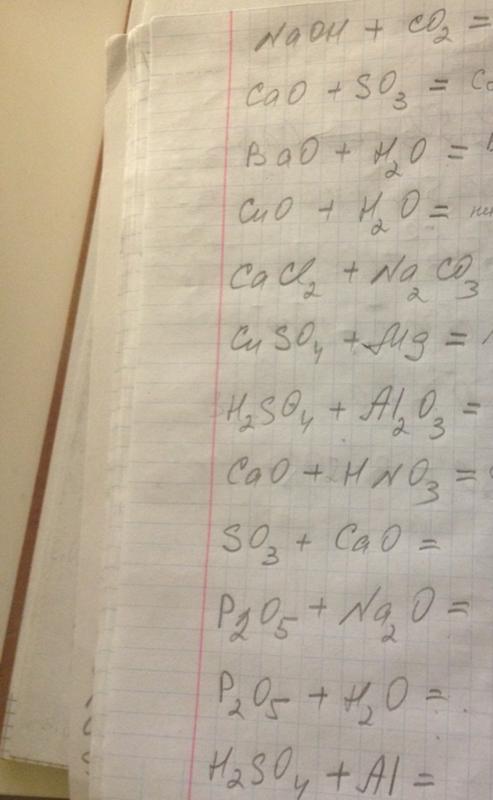 NaOH + CO₂ =
CaO + SO₃ =
BaO + H₂O =
CuO + H₂O =
CaCl₂ + Na₂CO₃
CuSO₄ + Mg =
H₂SO₄ + Al₂O₃ =
CaO + HNO₃ =
SO₃ + CaO =
P₂O₅ + Na₂O =
P₂O₅ + H₂O =
H₂SO₄ + Al =